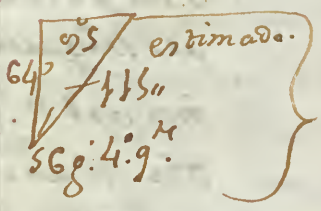 95 estimado.
64
115"
56 g: 4: q M.